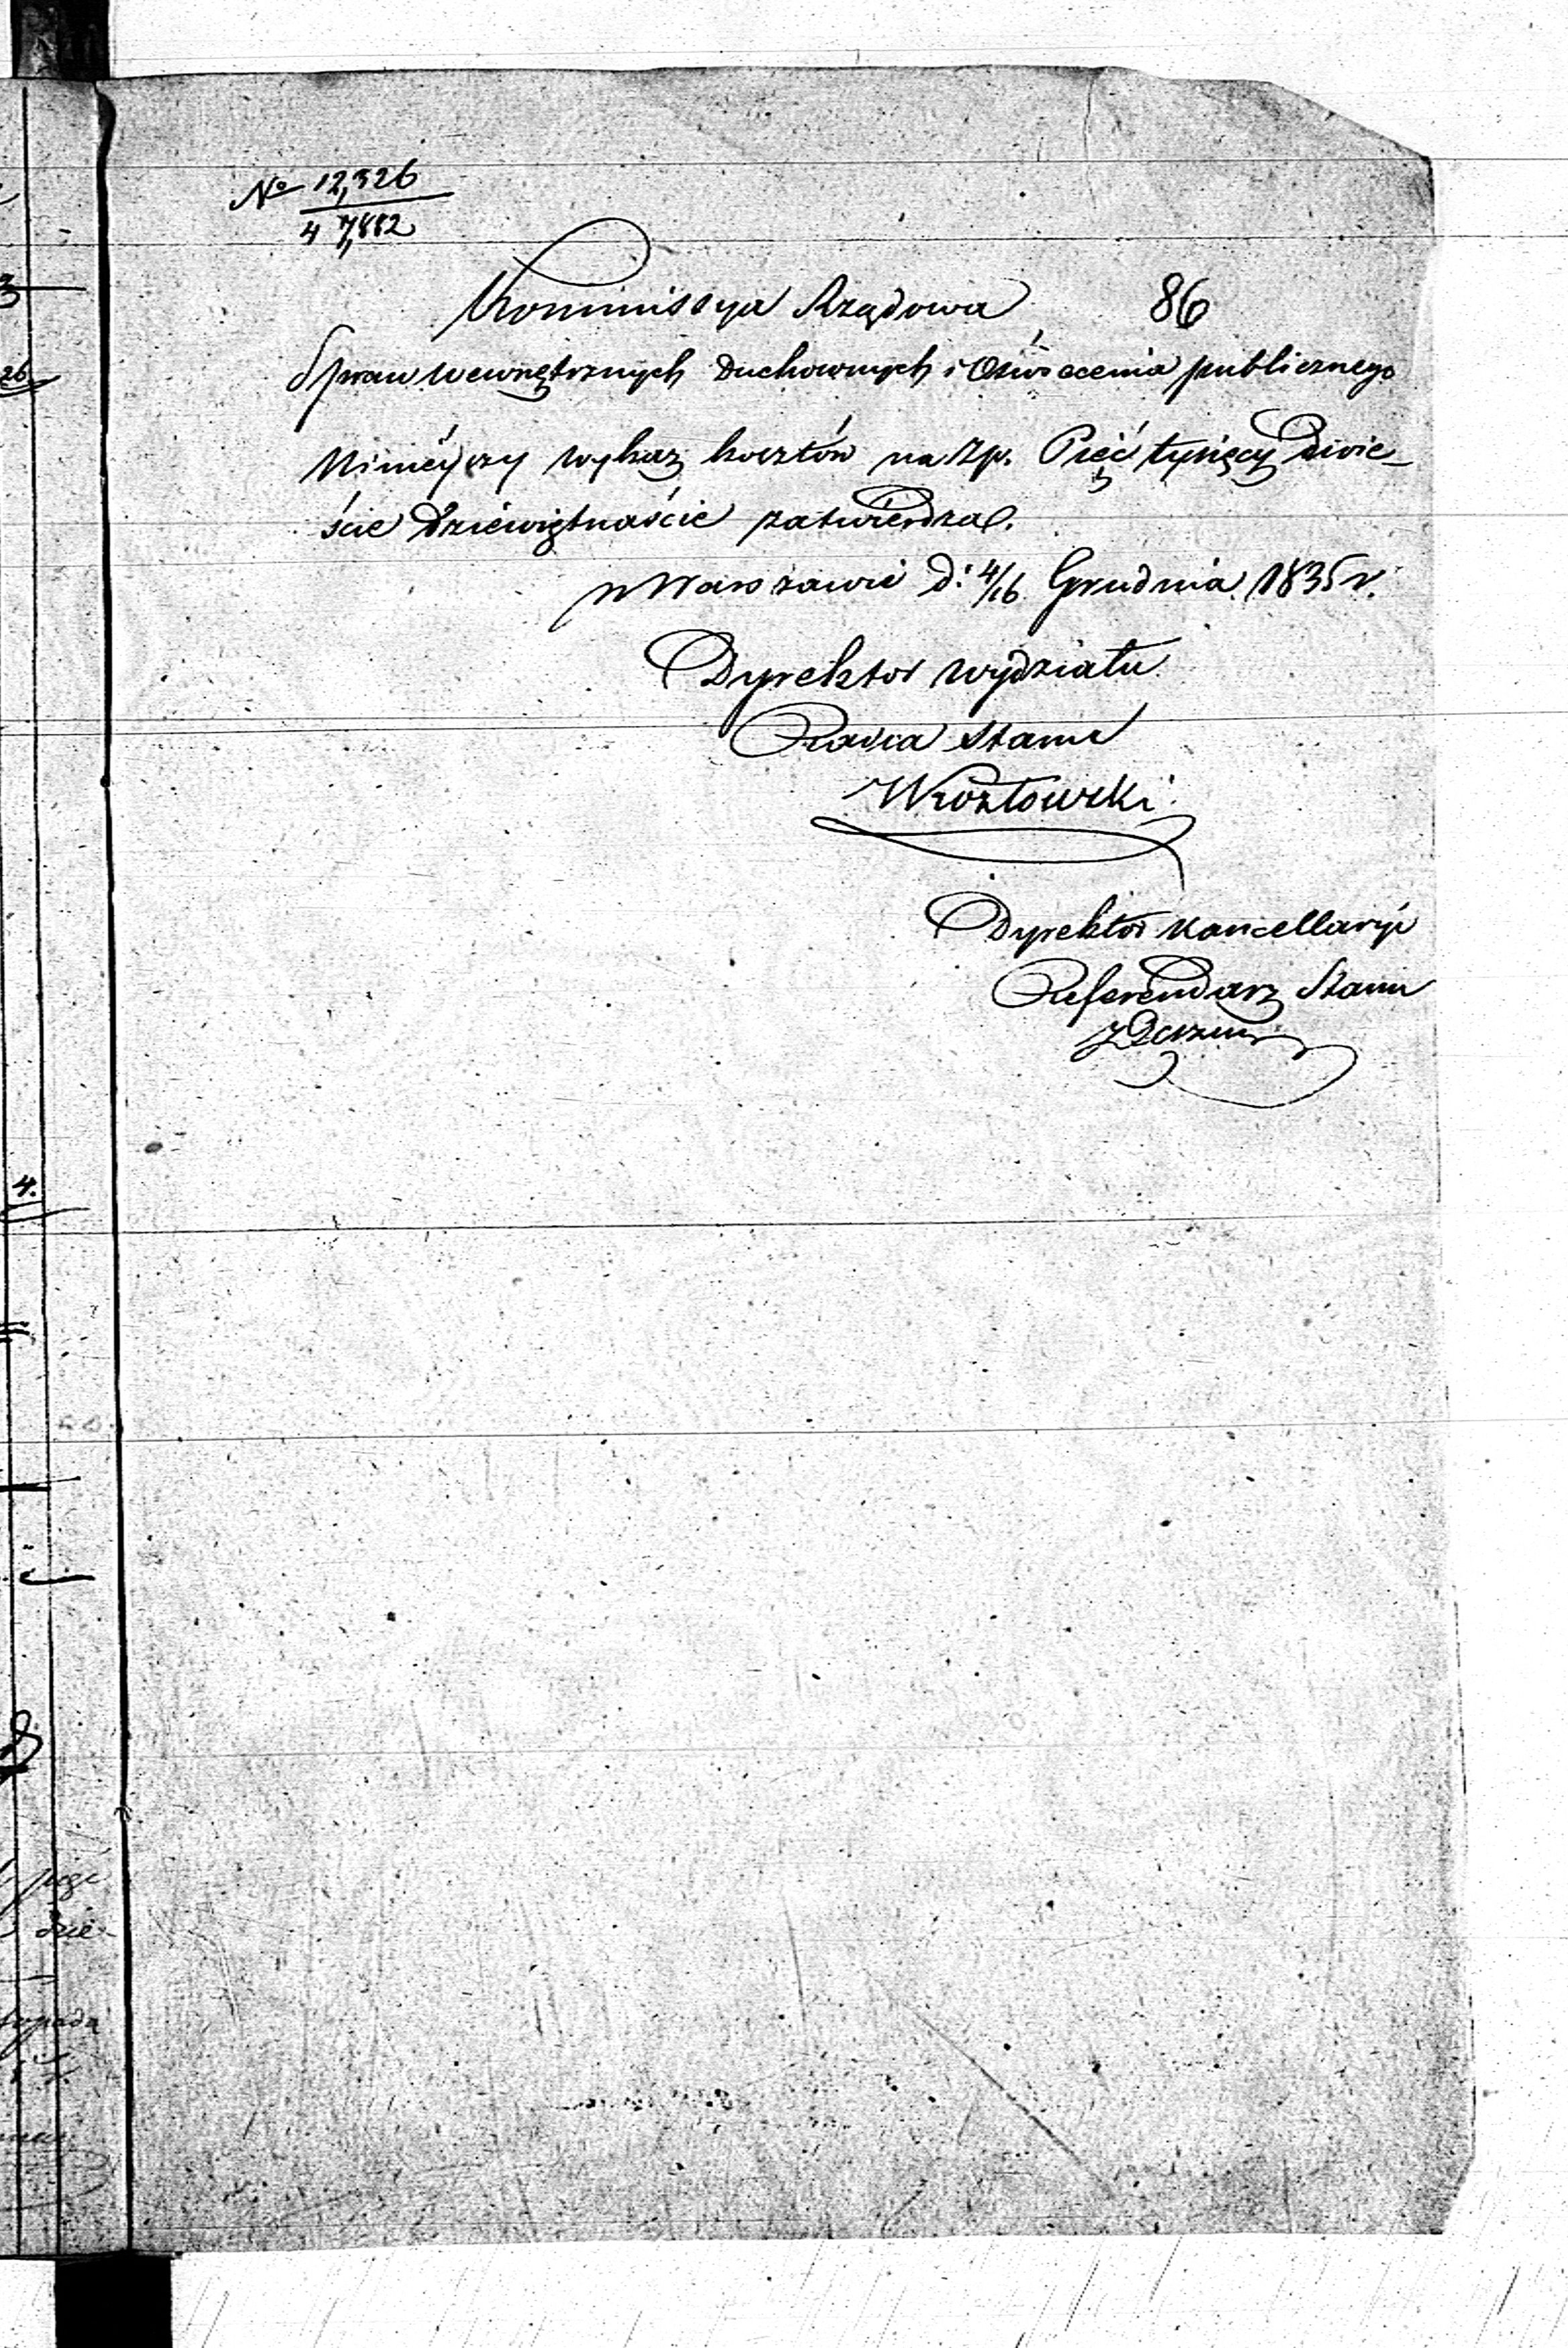 No 12,326
47,882
Kommissya Rządowa 86
Spraw Wewnętrznych Duchownych i Oświecenia publicznego
Ninieyszy wykaz kosztów na Zp. Pięć tysięcy dwie-
ście dziewiętnaście zatwierdza.
w Warszawie d: 4/16 Grudnia 1835 r.
Dyrektor Wydziału
Radca Stanu
Kozłowski
Dyrektor Kancellaryi
Referendarz Stanu
3
26
4.
dzie-